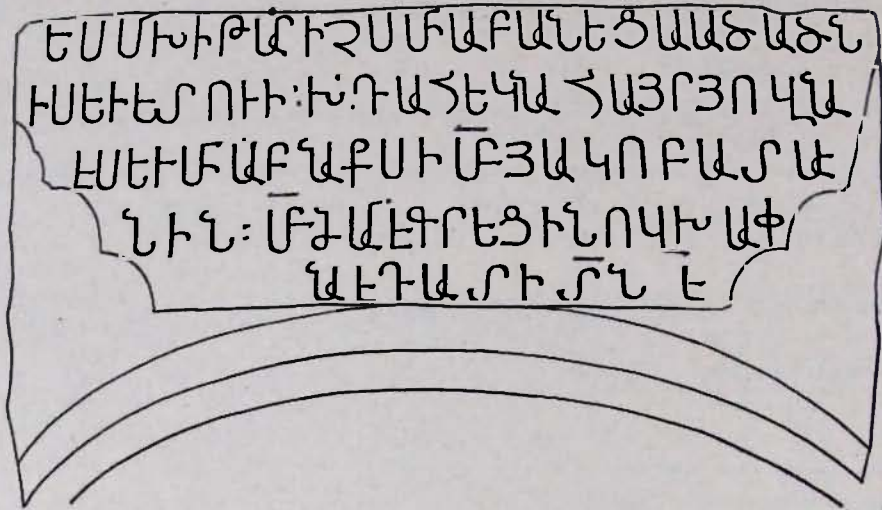 ԵՍՄԽԻԹԱՐԻՉՍՄԻԱԲԱՆԵՑԱԱԾԱԾՆ
ԻՍԵՒԵՏՈՒԻ:Խ:ԴԱՀԵԿԱՆՀԱՅՐՅՈՎԱՆ
ԷՍԵՒՄԻԱԲԱՆՔՍԻՍԲՅԱԿՈԲԱՏԱՒ
ՆԻՆ:ՄԺԱՄԷԳՐԵՑԻՆՈՎԽԱՓ
ԱՆԷԴԱՏԻՏՆԷ